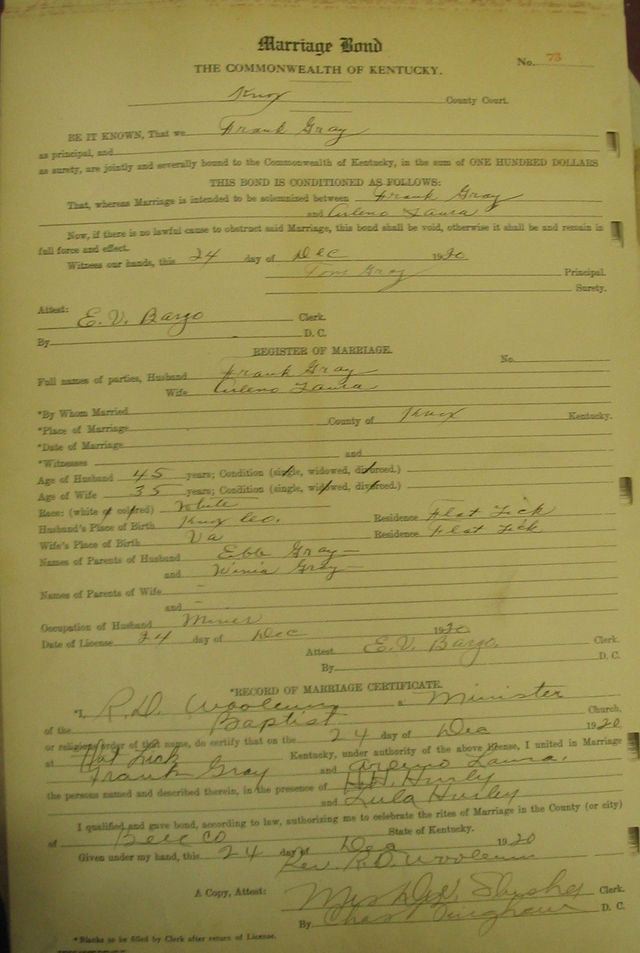 Marriage Bond
THE COMMONWEALTH OF KENTUCKY.
No. 73
Knox County Court.
BE IT KNOWN, That we Frank Gray
as principal, and
as surety, are jointly and severally bound to the Commonwealth of Kentucky, in the sum of ONE HUNDRED DOLLARS
THIS BOND IS CONDITIONED AS FOLLOWS:
That, whereas Marriage is intended to be solemnized between Frank Gray
and Arleno Laura
Now, if there is no lawful cause to obstruct said Marriage, this bond shall be void, otherwise it shall be and remain in
full force and effect.
Witness our hands, this 24 day of Dec 1920
Tom Gray Principal.
Surety.
Attest:
E. V. Bargo Clerk.
By D. C.
REGISTER OF MARRIAGE.
No.
Full names of parties, Husband Frank Gray
Wife Arleno Laura
*By Whom Married
*Place of Marriage County of Knox Kentucky.
*Date of Marriage
*Witnesses and
Age of Husband 45 years; Condition (single, widowed, divorced.)
Age of Wife 35 years; Condition (single, widowed, divorced.)
Race: (white or colored) White
Husband's Place of Birth Knox Co. Residence Flat Lick
Wife's Place of Birth Va Residence Flat Lick
Names of Parents of Husband Ebb Gray
and Winia Gray
Names of Parents of Wife -
and -
Occupation of Husband Miner
Date of License 24 day of Dec 1920
Attest E. V. Bargo Clerk.
By D. C.
*RECORD OF MARRIAGE CERTIFICATE.
*I, R. D. Woolum a Minister
of the Baptist Church,
or religious order of that name, do certify that on the 24 day of Dec 1920
at Flat Lick Kentucky, under authority of the above license, I united in Marriage
Frank Gray and Arleno Laura,
the persons named and described therein, in the presence of Hurly
and Lula Hurley
I qualified and gave bond, according to law, authorizing me to celebrate the rites of Marriage in the County (or city)
of Bell Co State of Kentucky.
Given under my hand, this 24 day of Dec 1920
Rev. R. D. Woolum
A Copy, Attest: Mrs Clerk.
By Chas Bingham D. C.
*Blanks to be filled by Clerk after return of License.